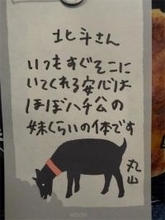 北斗さん
いつもすぐそこに
いてくれる安心は
ほぼハチ公の
妹くらいの体です
丸山